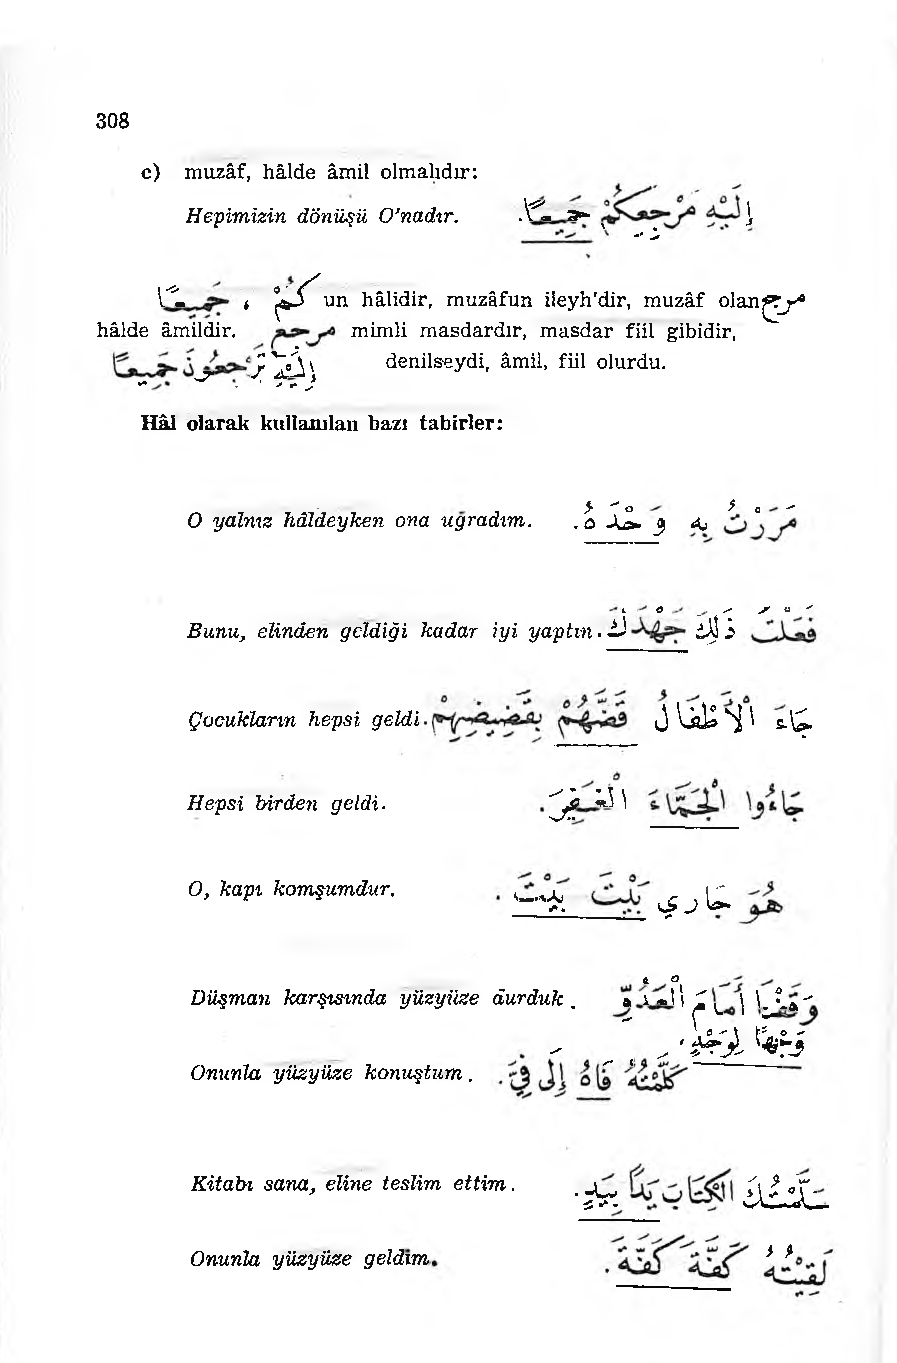 308
c) muzâf, hâlde âmil olmalıdır:
Hepimizin dönüşü O'nadır. إِلَيْهِ مَرْجِعُكُمْ جَمِيعًا.
جَمِيعًا ، كُمْ un hâlidir, muzâfun ileyh'dir, muzâf olan مرجع
hâlde âmildir. مرجع mimli masdardır, masdar fiil gibidir,
إِلَيْهِ تَرْجِعُونَ جَمِيعًا denilseydi, âmil, fiil olurdu.
Hâl olarak kullanılan bazı tabirler:
O yalnız hâldeyken ona uğradım. مَرَرْتُ بِهِ وَحْدَهُ.
Bunu, elinden geldiği kadar iyi yaptın. فَعَلْتَ ذٰلِكَ جَهْدَكَ
Çocukların hepsi geldi. جَاءَ الْأَطْفَالُ قَضَّهُمْ بِقَضِيضِهِمْ
Hepsi birden geldi. جَاءُوا الْجَمَّاءَ الْغَفِيرَ.
O, kapı komşumdur. هُوَ جَارِي بَيْتَ بَيْتَ.
Düşman karşısında yüzyüze durduk. وَقَفْنَا أَمَامَ الْعَدُوِّ
وَجْهًا لِوَجْهٍ.
Onunla yüzyüze konuştum. كَلَّمْتُهُ فَاهُ إِلَى فِيَّ.
Kitabı sana, eline teslim ettim. سَلَّمْتُكَ الْكِتَابَ يَدًا بِيَدٍ.
Onunla yüzyüze geldim. لَقِيتُهُ كَفَّةَ كَفَّةَ.